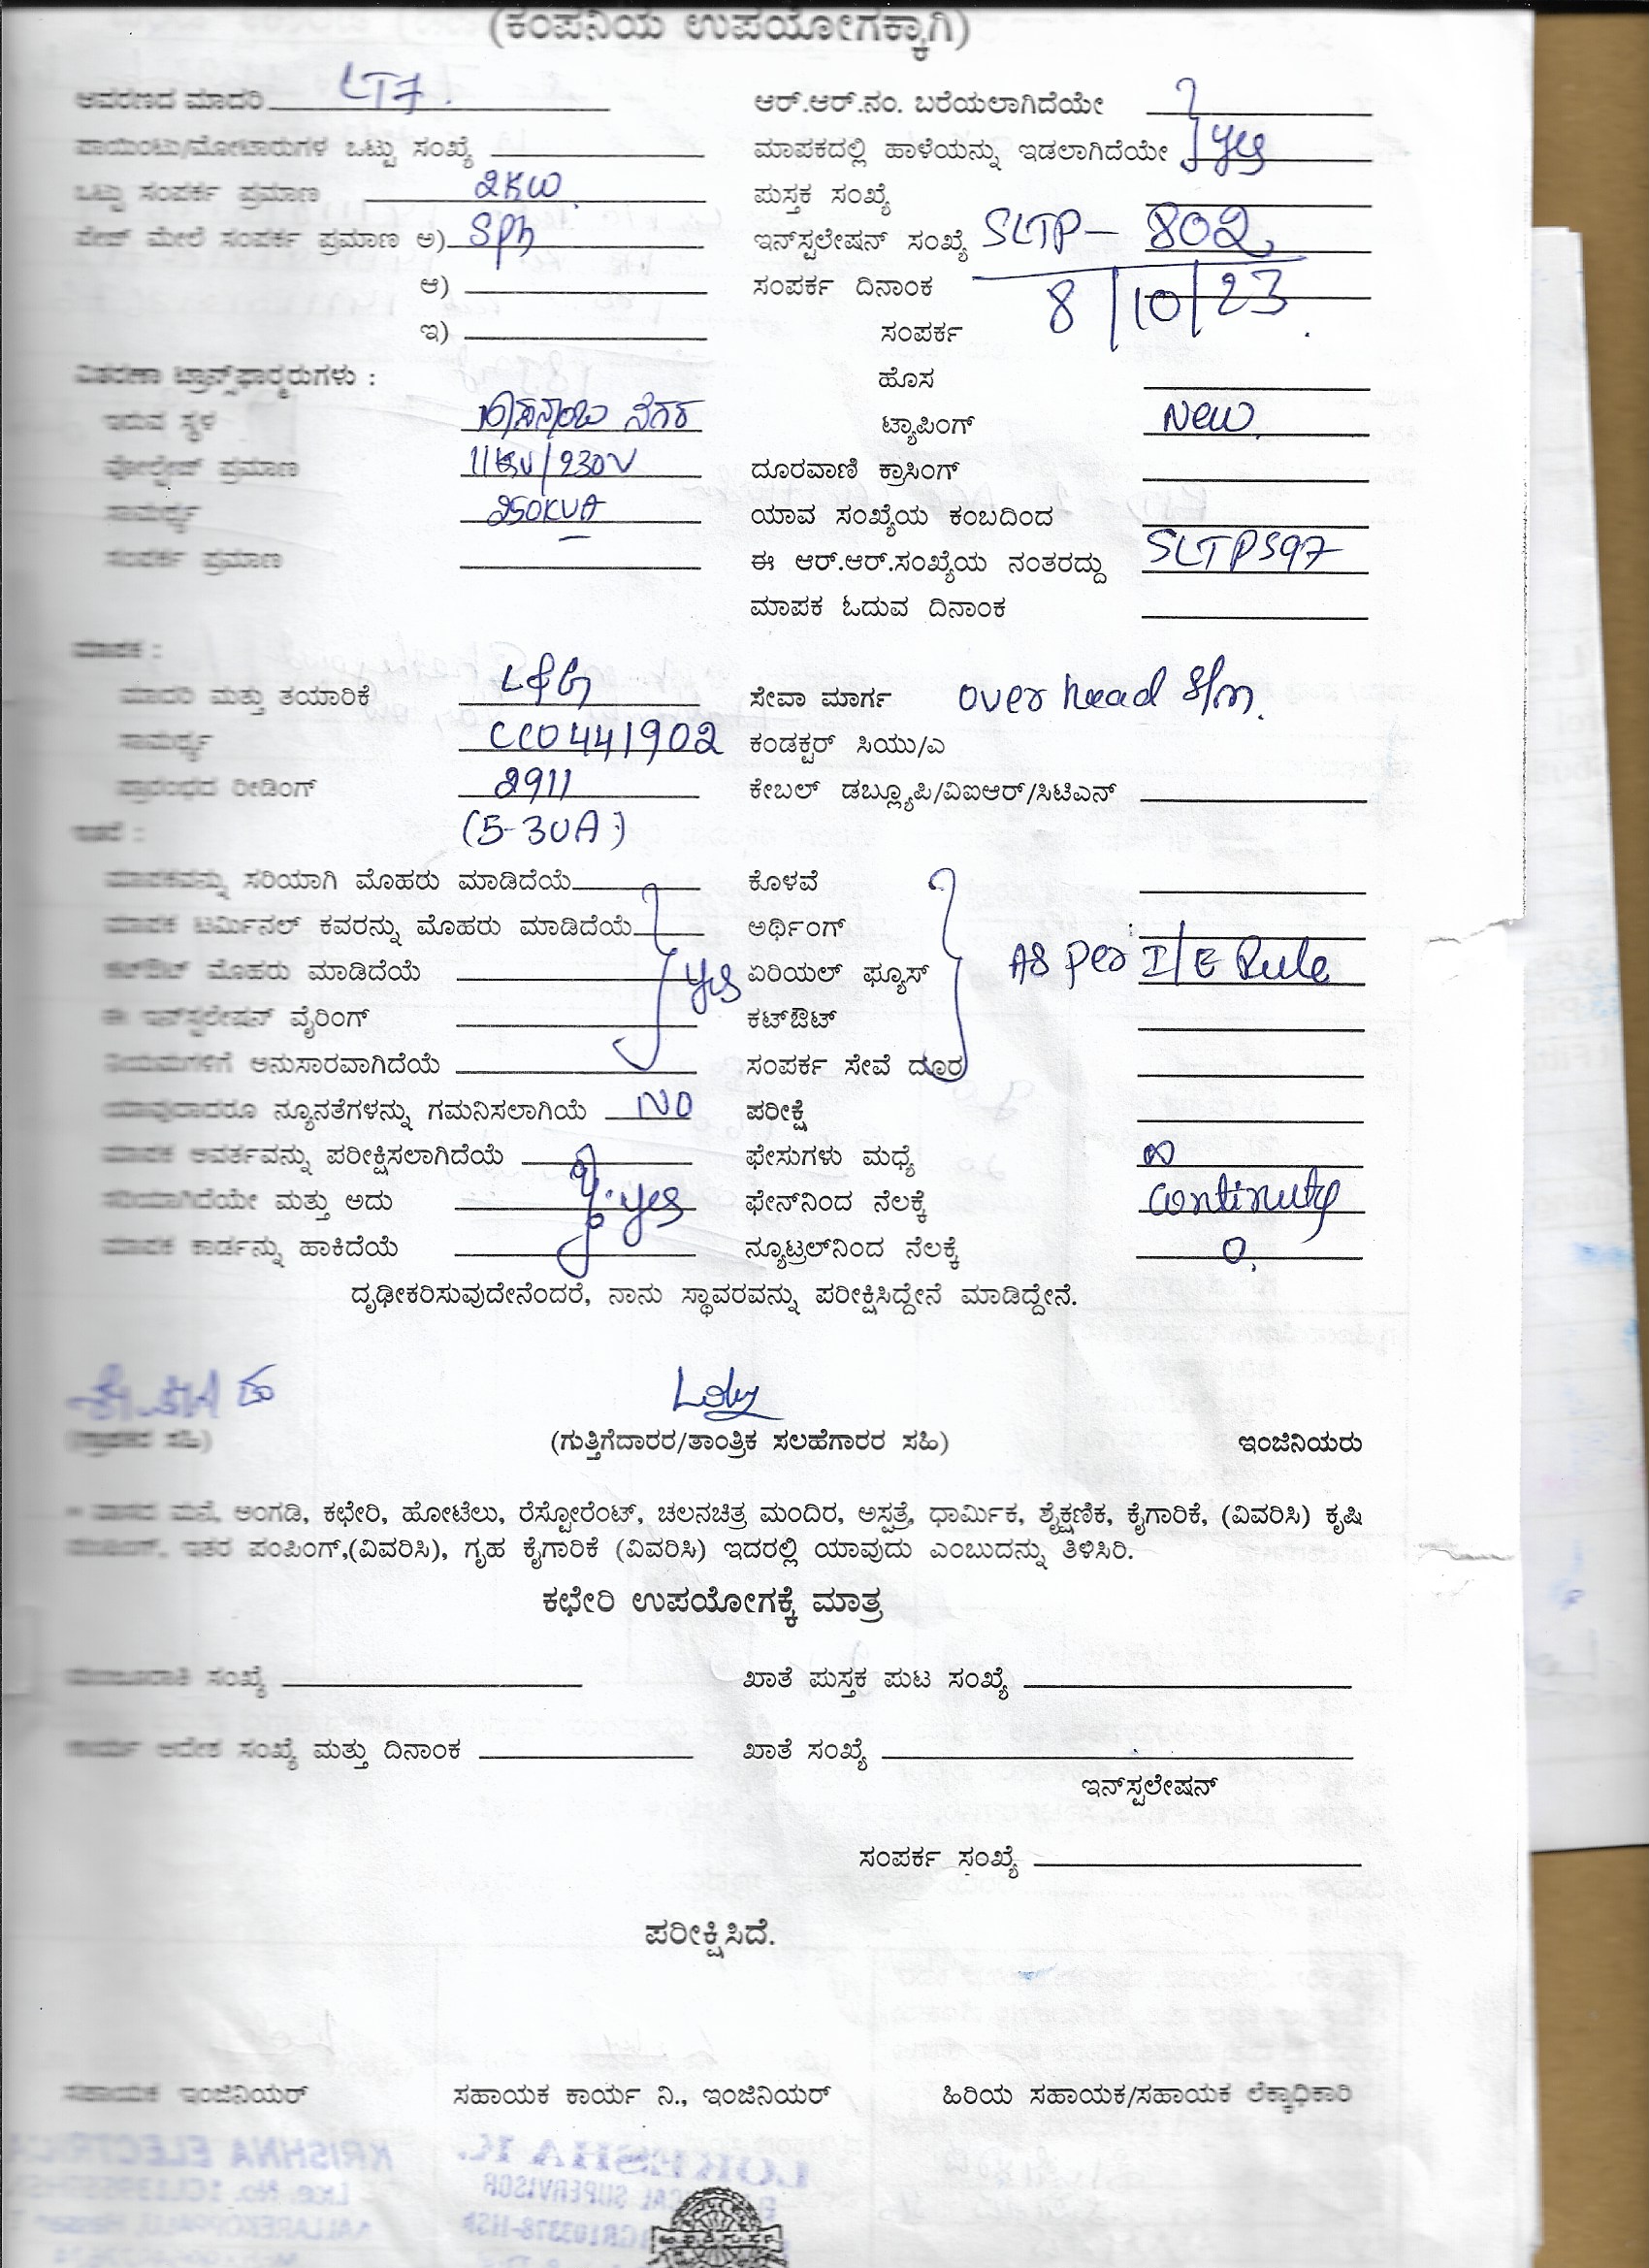 (ಕಂಪನಿಯ ಉಪಯೋಗಕ್ಕಾಗಿ)
ಆವರಣದ ಮಾದರಿ LT7. ಆರ್.ಆರ್.ನಂ. ಬರೆಯಲಾಗಿದೆಯೇ
ಪಾಯಿಂಟು/ಮೋಟಾರುಗಳ ಒಟ್ಟು ಸಂಖ್ಯೆ ಮಾಪಕದಲ್ಲಿ ಹಾಳೆಯನ್ನು ಇಡಲಾಗಿದೆಯೇ yes
ಒಟ್ಟು ಸಂಪರ್ಕ ಪ್ರಮಾಣ 2KW. ಪುಸ್ತಕ ಸಂಖ್ಯೆ
ಪೇಜ್ ಮೇಲೆ ಸಂಪರ್ಕ ಪ್ರಮಾಣ ಅ) Sph ಇನ್‌ಸ್ಟಲೇಷನ್ ಸಂಖ್ಯೆ SLTP- 802
ಆ) ಸಂಪರ್ಕ ದಿನಾಂಕ 8/10/23.
ಇ) ಸಂಪರ್ಕ
ವಿತರಣಾ ಟ್ರಾನ್ಸ್‌ಫಾರ್ಮರುಗಳು : ಹೊಸ
ಇರುವ ಸ್ಥಳ ನಗರ ಟ್ಯಾಪಿಂಗ್ New.
ವೋಲ್ಟೇಜ್ ಪ್ರಮಾಣ 11KV/230V ದೂರವಾಣಿ ಕ್ರಾಸಿಂಗ್
ಸಾಮರ್ಥ್ಯ 250KVA ಯಾವ ಸಂಖ್ಯೆಯ ಕಂಬದಿಂದ
ಸಂಪರ್ಕ ಪ್ರಮಾಣ ಈ ಆರ್.ಆರ್.ಸಂಖ್ಯೆಯ ನಂತರದ್ದು SLTP597
ಮಾಪಕ ಓದುವ ದಿನಾಂಕ
ಮಾಪಕ :
ಮಾದರಿ ಮತ್ತು ತಯಾರಿಕೆ L&G ಸೇವಾ ಮಾರ್ಗ over head S/m.
ಸಾಮರ್ಥ್ಯ CC0441902 ಕಂಡಕ್ಟರ್ ಸಿಯು/ಎ
ಪ್ರಾರಂಭದ ರೀಡಿಂಗ್ 2911 ಕೇಬಲ್ ಡಬ್ಲ್ಯೂಪಿ/ವಿಐಆರ್/ಸಿಟಿಎನ್
(5-30A)
ಮಾಪಕವನ್ನು ಸರಿಯಾಗಿ ಮೊಹರು ಮಾಡಿದೆಯೆ ಕೊಳವೆ
ಮಾಪಕ ಟರ್ಮಿನಲ್ ಕವರನ್ನು ಮೊಹರು ಮಾಡಿದೆಯೆ ಅರ್ಥಿಂಗ್
ಕಟ್‌ಔಟ್ ಮೊಹರು ಮಾಡಿದೆಯೆ yes ಏರಿಯಲ್ ಫ್ಯೂಸ್ As per I/E Rule
ಈ ಇನ್‌ಸ್ಟಲೇಷನ್ ವೈರಿಂಗ್ ಕಟ್‌ಔಟ್
ನಿಯಮಗಳಿಗೆ ಅನುಸಾರವಾಗಿದೆಯೆ ಸಂಪರ್ಕ ಸೇವೆ ದೂರ
ಯಾವುದಾದರೂ ನ್ಯೂನತೆಗಳನ್ನು ಗಮನಿಸಲಾಗಿಯೆ NO ಪರೀಕ್ಷೆ
ಮಾಪಕ ಆವರ್ತವನ್ನು ಪರೀಕ್ಷಿಸಲಾಗಿದೆಯೆ ಫೇಸುಗಳು ಮಧ್ಯೆ ∞
ಸರಿಯಾಗಿದೆಯೇ ಮತ್ತು ಅದು yes ಫೇನ್‌ನಿಂದ ನೆಲಕ್ಕೆ continuty
ಮಾಪಕ ಕಾರ್ಡನ್ನು ಹಾಕಿದೆಯೆ ನ್ಯೂಟ್ರಲ್‌ನಿಂದ ನೆಲಕ್ಕೆ 0.
ದೃಢೀಕರಿಸುವುದೇನೆಂದರೆ, ನಾನು ಸ್ಥಾವರವನ್ನು ಪರೀಕ್ಷಿಸಿದ್ದೇನೆ ಮಾಡಿದ್ದೇನೆ.
(ಗ್ರಾಹಕರ ಸಹಿ) (ಗುತ್ತಿಗೆದಾರರ/ತಾಂತ್ರಿಕ ಸಲಹೆಗಾರರ ಸಹಿ) ಇಂಜಿನಿಯರು
* ವಾಸದ ಮನೆ, ಅಂಗಡಿ, ಕಛೇರಿ, ಹೋಟೆಲು, ರೆಸ್ಟೋರೆಂಟ್, ಚಲನಚಿತ್ರ ಮಂದಿರ, ಅಸ್ಪತ್ರೆ, ಧಾರ್ಮಿಕ, ಶೈಕ್ಷಣಿಕ, ಕೈಗಾರಿಕೆ, (ವಿವರಿಸಿ) ಕೃಷಿ
ಇತರ ಪಂಪಿಂಗ್,(ವಿವರಿಸಿ), ಗೃಹ ಕೈಗಾರಿಕೆ (ವಿವರಿಸಿ) ಇದರಲ್ಲಿ ಯಾವುದು ಎಂಬುದನ್ನು ತಿಳಿಸಿರಿ.
ಕಛೇರಿ ಉಪಯೋಗಕ್ಕೆ ಮಾತ್ರ
ಮಂಜೂರಾತಿ ಸಂಖ್ಯೆ ಖಾತೆ ಪುಸ್ತಕ ಪುಟ ಸಂಖ್ಯೆ
ಕಾರ್ಯ ಆದೇಶ ಸಂಖ್ಯೆ ಮತ್ತು ದಿನಾಂಕ ಖಾತೆ ಸಂಖ್ಯೆ
ಇನ್‌ಸ್ಟಲೇಷನ್
ಸಂಪರ್ಕ ಸಂಖ್ಯೆ
ಪರೀಕ್ಷಿಸಿದೆ.
ಸಹಾಯಕ ಇಂಜಿನಿಯರ್ ಸಹಾಯಕ ಕಾರ್ಯ ನಿ., ಇಂಜಿನಿಯರ್ ಹಿರಿಯ ಸಹಾಯಕ/ಸಹಾಯಕ ಲೆಕ್ಕಾಧಿಕಾರಿ